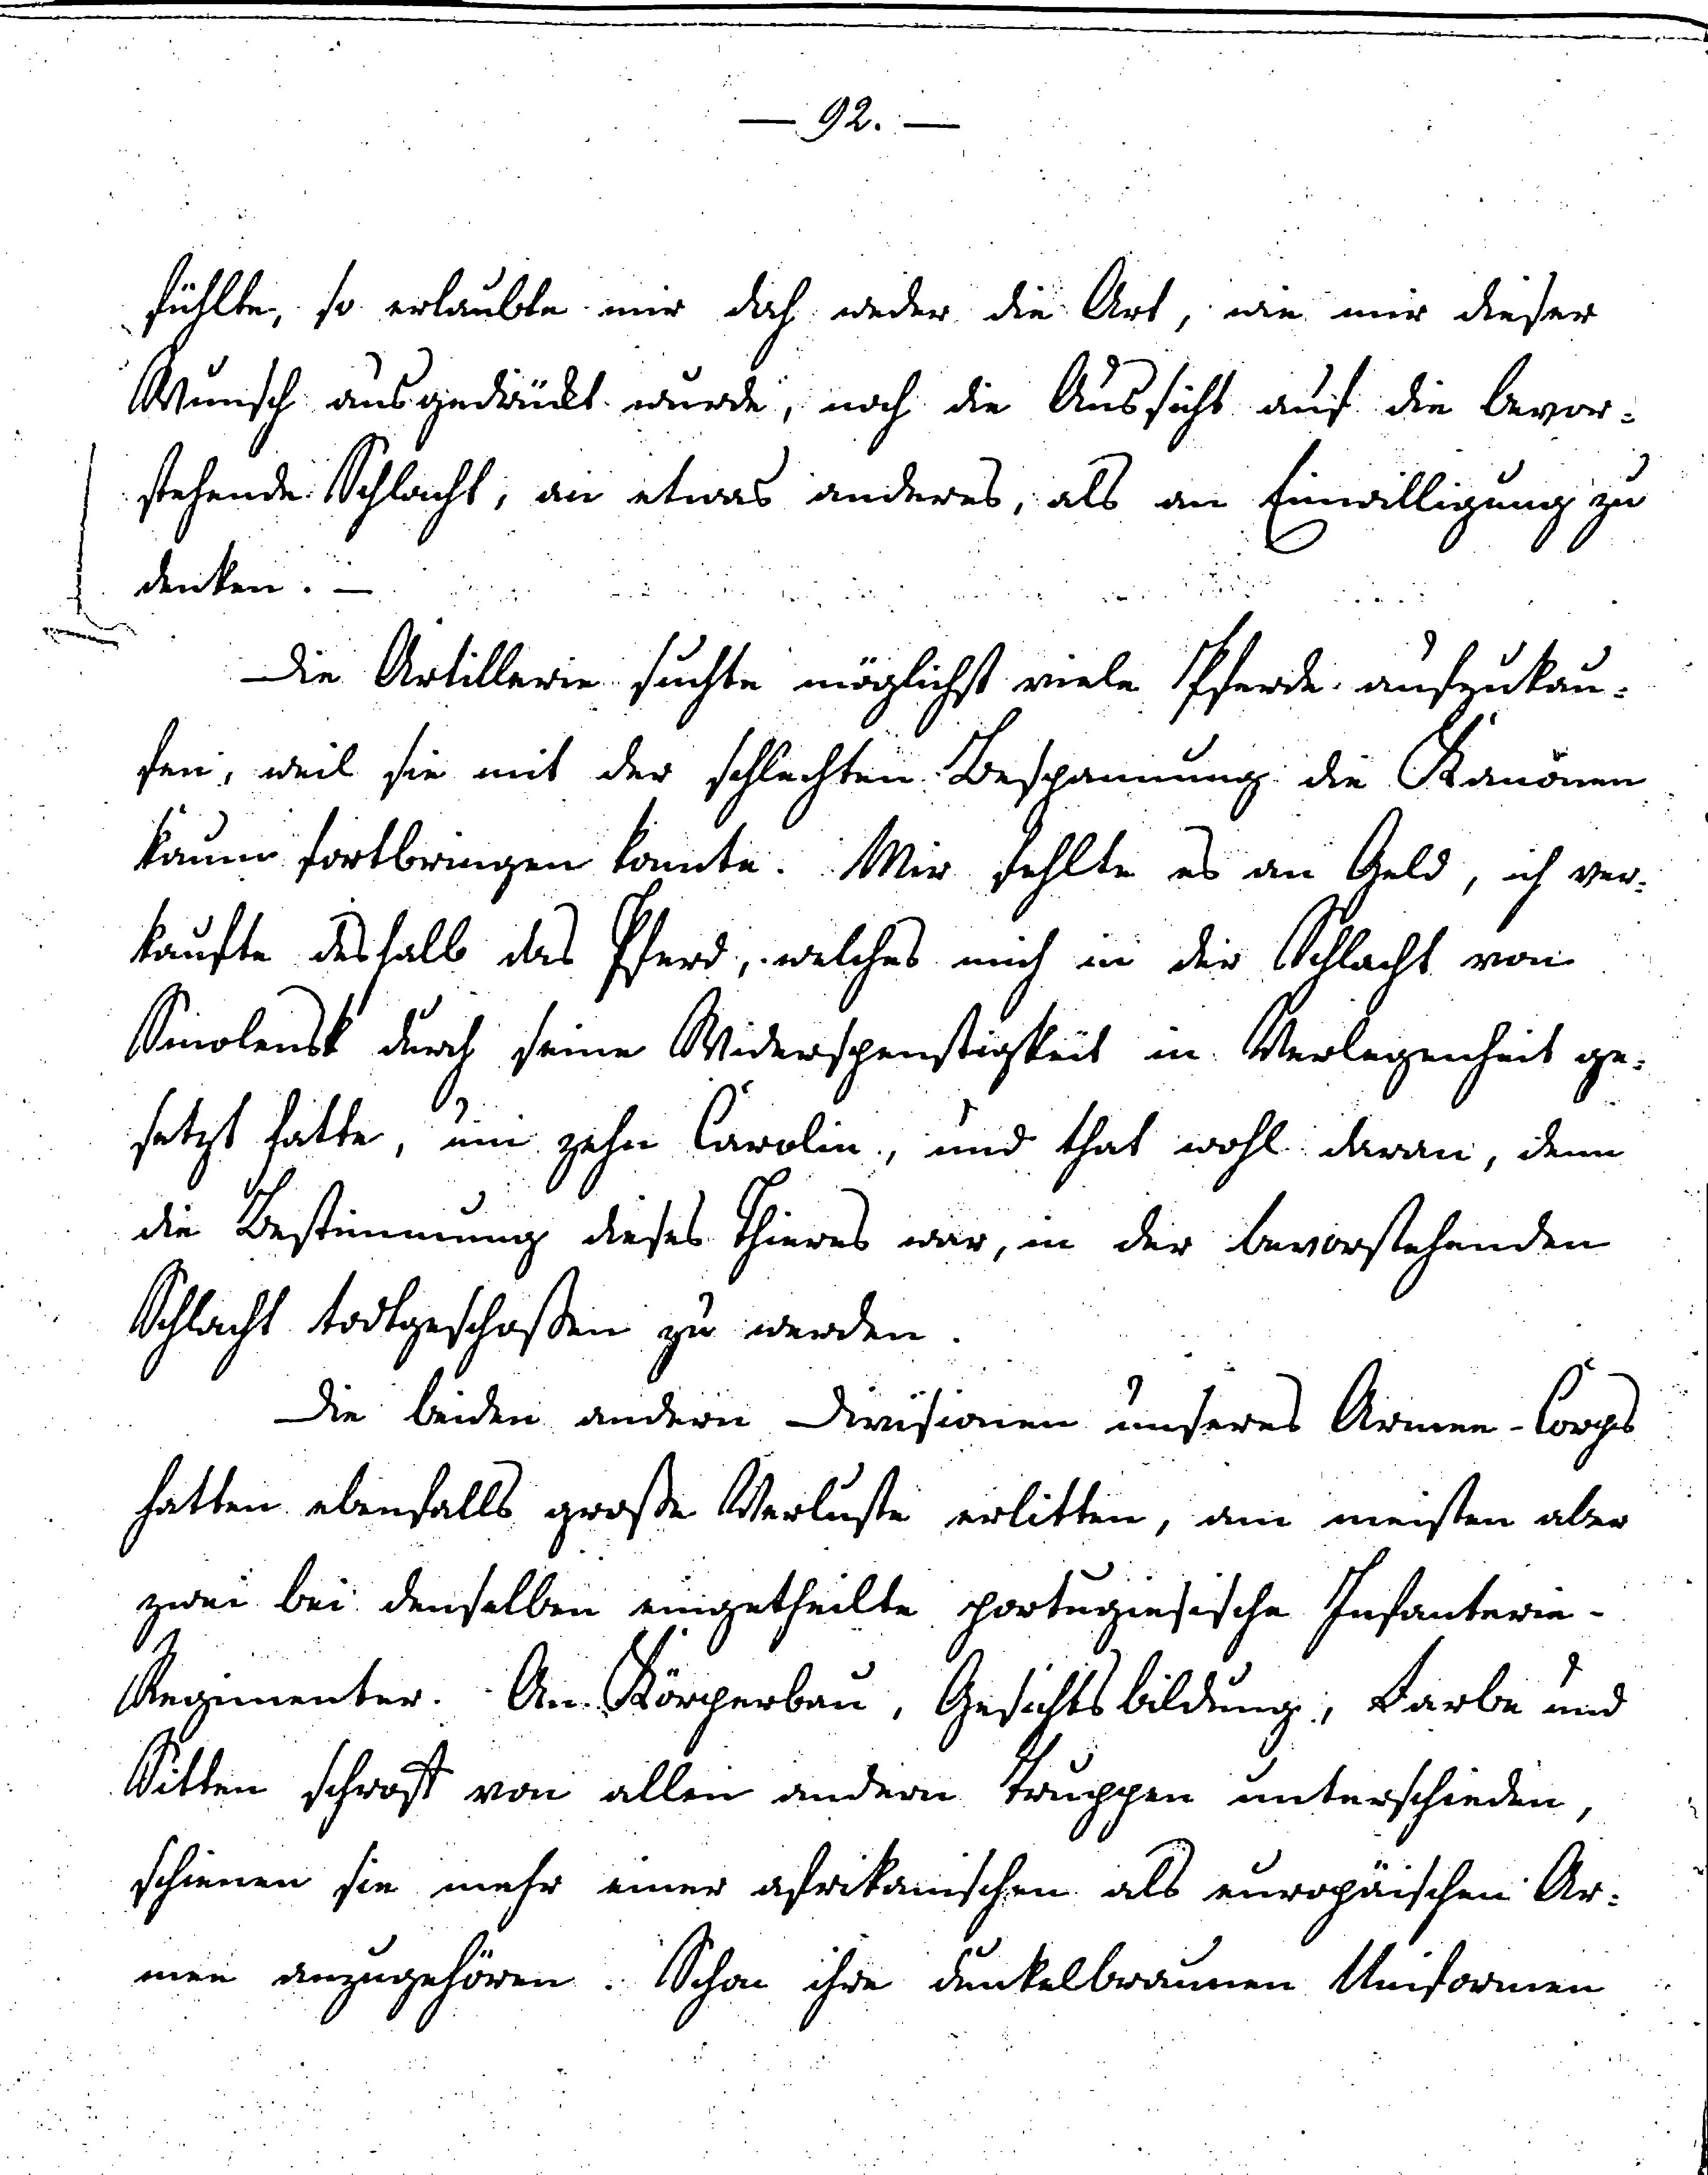 — 92. —
fühlte, so erlaubte mir doch weder die Art, wie mir dieser
Wunsch ausgedrückt wurde, noch die Aussicht auf die bevor=
stehende Schlacht, an etwas anderes, als an Einwilligung zu
denken. —
Die Artillerie suchte möglichst viele Pferde aufzukau=
fen, weil sie mit der schlechten Bespannung die Kanonen
kaum fortbringen konnte. Mir fehlte es an Geld, ich ver=
kaufte deshalb das Pferd, welches mich in der Schlacht von
Smolensk durch seine Widerspenstigkeit in Verlegenheit ge=
setzt hatte, um zehn Carolin, und that wohl daran, denn
die Bestimmung dieses Thieres war, in der bevorstehenden
Schlacht todtgeschoßen zu werden.
Die beiden andern Divisionen unseres Armee-Corps
hatten ebenfalls große Verluste erlitten, am meisten aber
zwei bei denselben eingetheilte portugiesische Infanterie-
Regimenter. An Körperbau, Gesichtsbildung, Farbe und
Sitten schroff von allen andern Truppen unterschieden,
schienen sie mehr einer afrikanischen als europäischen Ar=
mee anzugehören. Schon ihre dunkelbraunen Uniformen